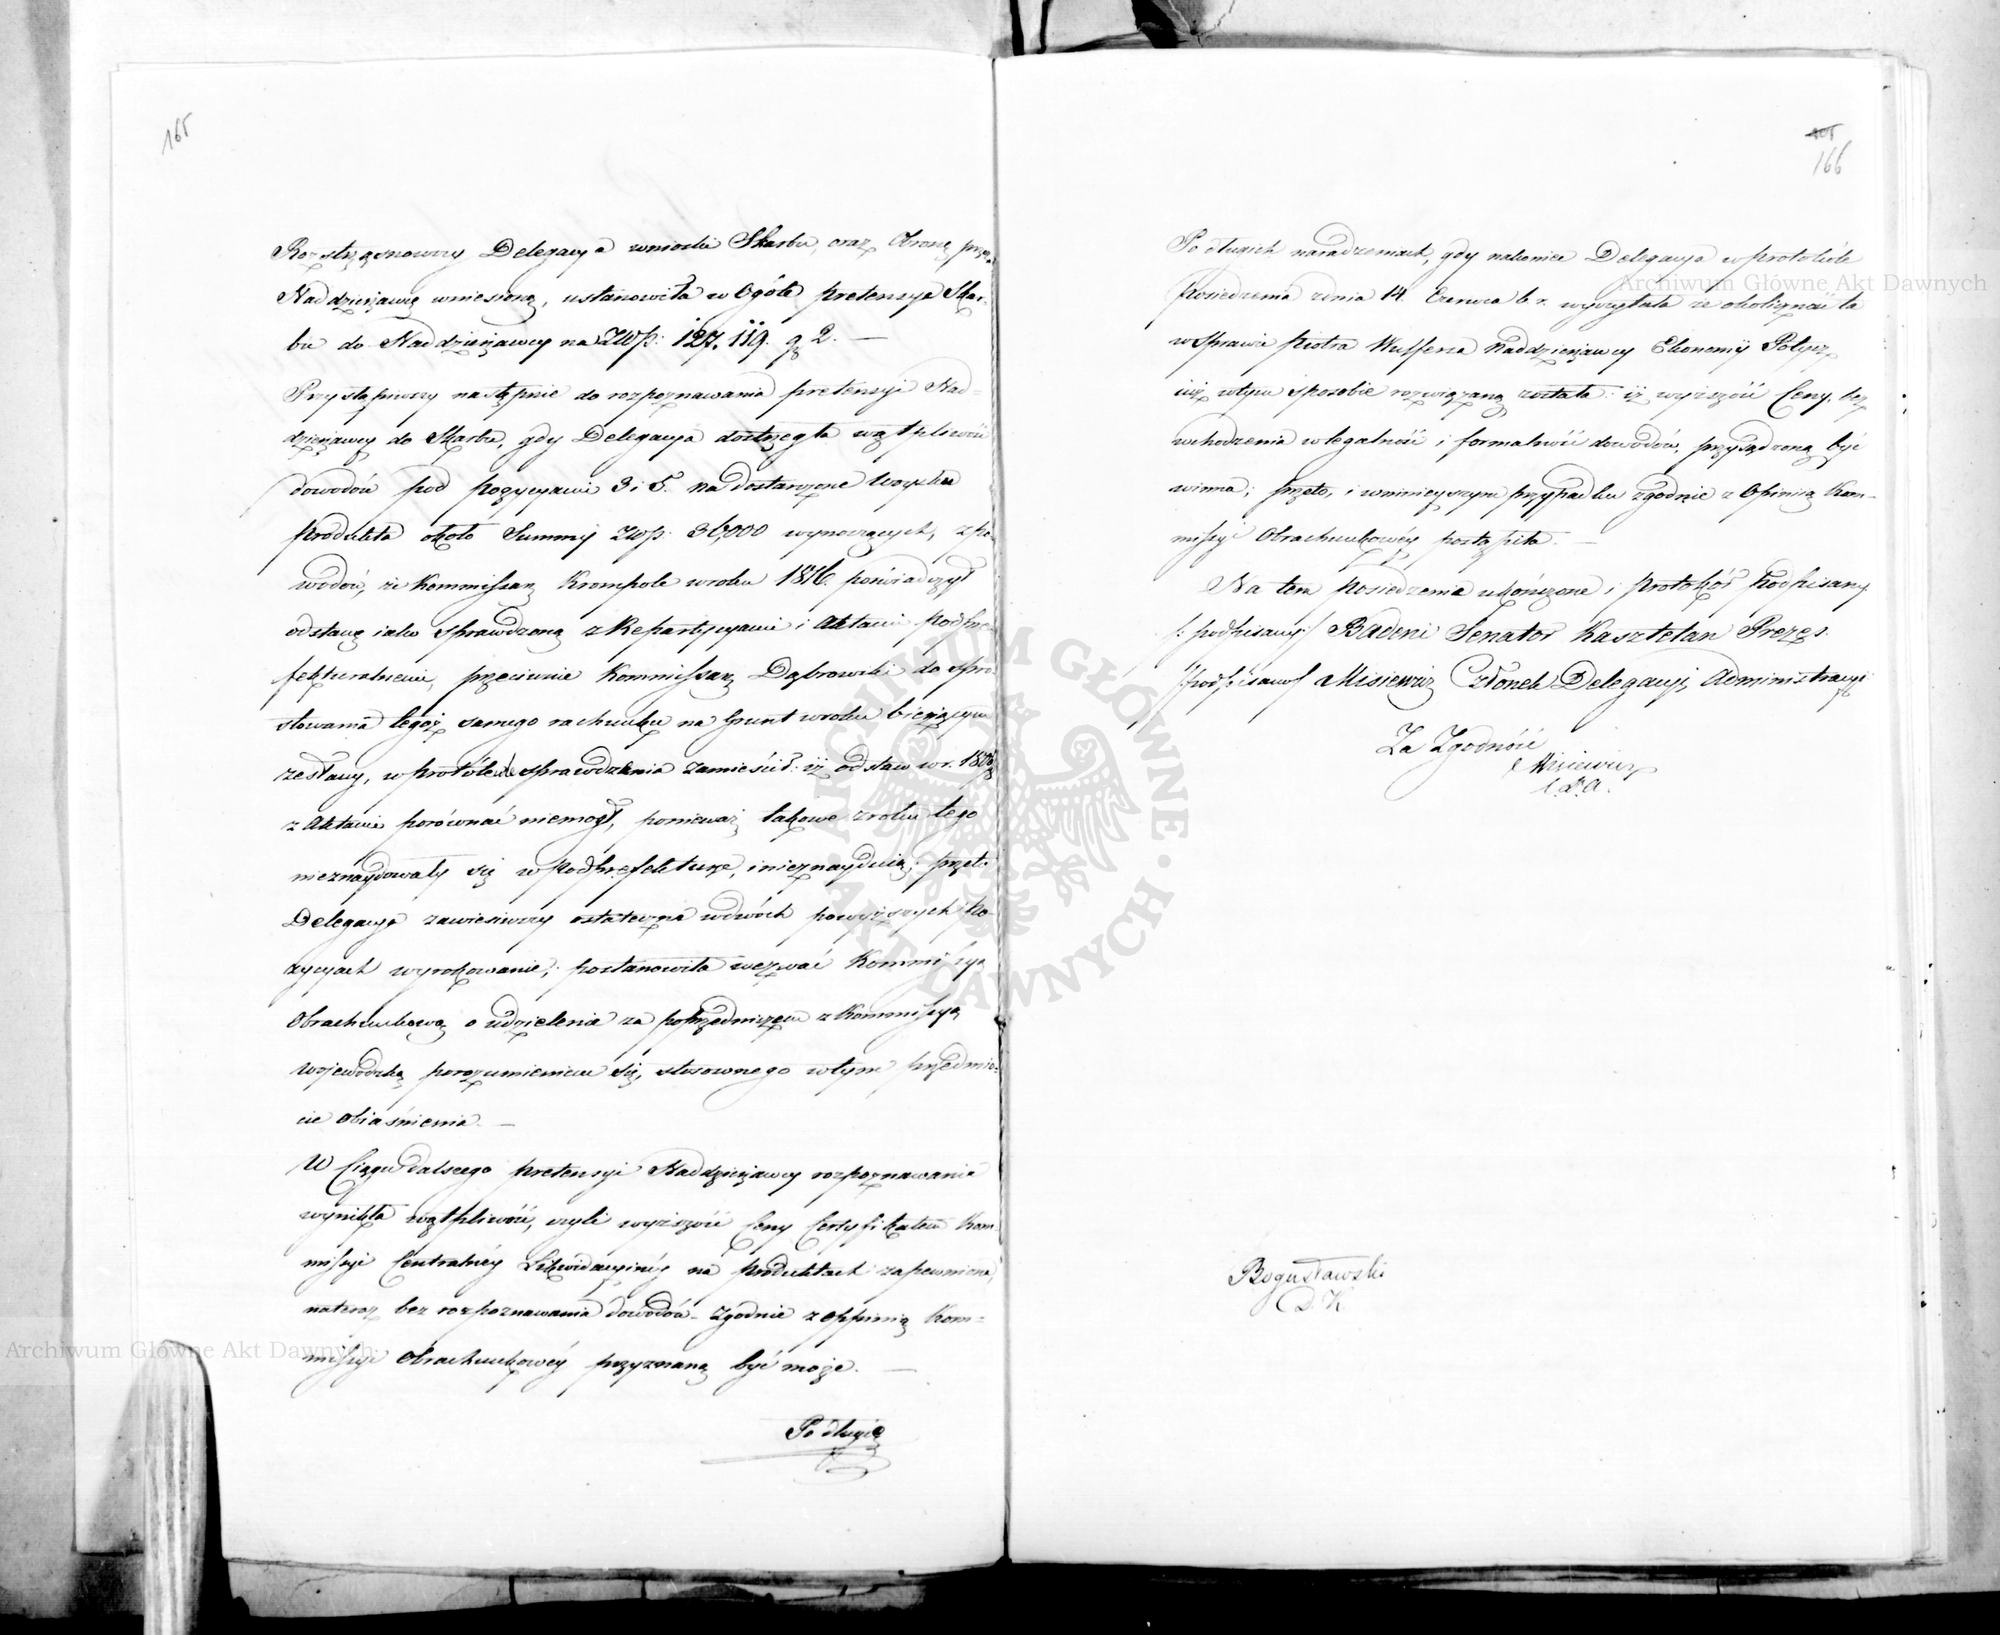 165
Rozstrząsnąwszy Delegacya wnioski Skarbu, oraz Obronę przez
Naddzierżawcę wniesioną, ustanowiła w Ogóle pretensye Skar-
bu do Naddzierżawcy na ZWp: 127,119. gr 2. —
Przystąpiwszy następnie do rozpoznawania pretensyi Nad-
dzierżawcy do Skarbu, gdy Delegacya dostrzegła wątpliwość
dowodów pod pozycyami 3 i 5. na dostarczone Woysku
produkta około Summy ZWp: 36,000 wynoszących, z po-
wodów, że Kommissarz Krompole w roku 1816. poświadczył
odstawę iako sprawdzoną z Repartycyami i Aktami Podpre-
fekturalnemi, przeciwnie Kommissarz Dąbrowski do spro-
stowania tegoż samego rachunku na Grunt w roku bieżącym
zesłany, w protokule sprawdzenia zamieścił: iż odstaw w r.
z Aktami porównać niemógł, ponieważ takowe z roku tego
nieznaydowały się w Podprefekturze, i nieznayduią; przeto
Delegacya zawiesiwszy ostateczne w dwóch powyższych po-
zycyach wyrokowanie, postanowiła wezwać Kommissyą
Obrachunkową o udzielenie za poprzedniczem z Kommissyą
Wojewodzką porozumieniem się, stosownego w tym przedmio-
cie obiaśnienia. —
W Ciągu dalszego pretensyi Naddzierżawcy rozpoznawania
wynikła wątpliwość, czyli wyższość Ceny Certyfikatem Kom-
missyi Centralnéy Likwidacyinéy na produktach zapewniona,
nateraz bez rozpoznawania dowodów - zgodnie z oppinią Kom-
missyi Obrachunkowéy przyznaną być może. —
Po długich
166
Po długich naradzeniach, gdy nakoniec Delegacya w protokóle
posiedzenia z dnia 14. Czerwca b. r. wyczytała że okoliczność ta
w sprawie Piotra Wulfersa Naddzierżawcy Ekonomii
iuż w tym sposobie rozwiązaną została: iż wyższość Ceny, bez
wchodzenia w legalność i formalność dowodów, przysądzoną być
winna; przeto, i w ninieyszym przypadku zgodnie z Opinią Kom-
missyi Obrachunkowéy postąpiła. —
Na tem posiedzenie ukończone i protokół podpisany
/: podpisany:/ Badeni Senator Kasztelan Prezes.
/:podpisany:/ Misiewicz Członek Delegacyi Administracyi
Za Zgodność
Misiewicz
C. D. A.
Bogusławski
D. K.
Archiwum Główne Akt Dawnych
Archiwum Główne Akt Dawnych
ARCHIWUM GŁÓWNE AKT DAWNYCH